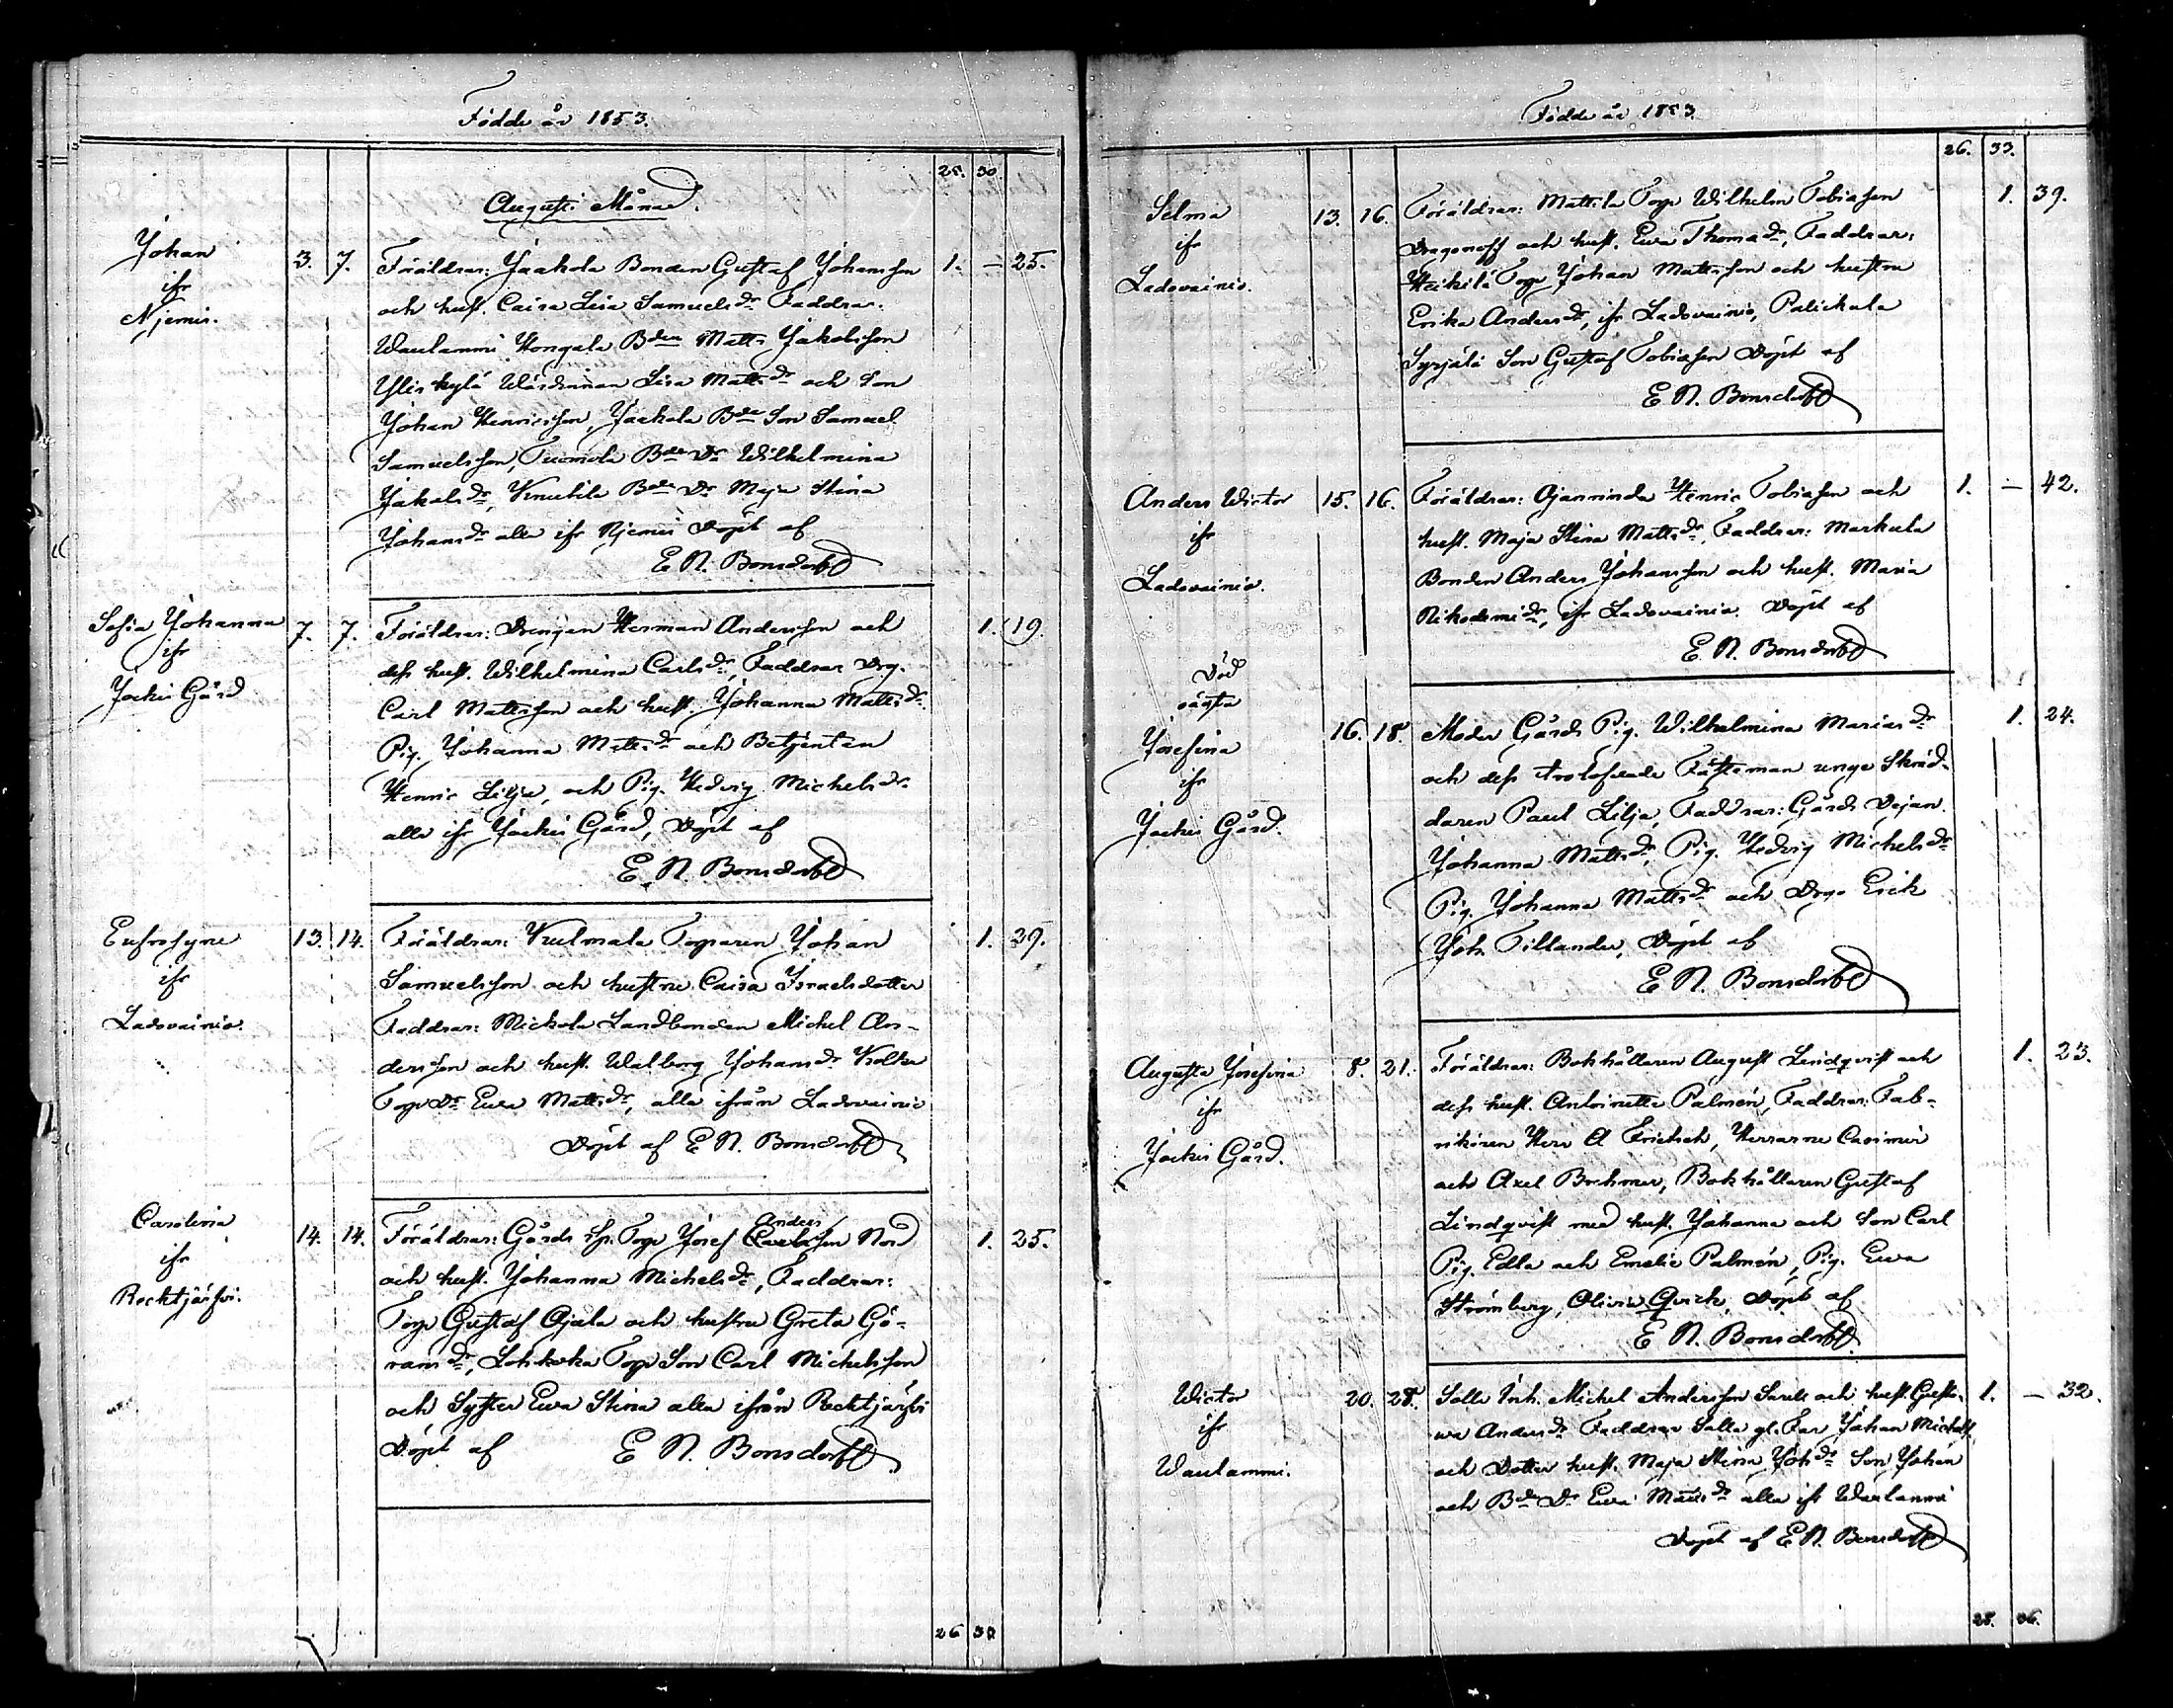 Födde år 1853.
25. 30.
Augusti Månad.
Johan
ifr
Njemis.
3. 7.
Föräldrar: Jaakola Bonden Gustaf Johansson 1. — 25.
och hust. Caisa Lisa Samuelsdr Faddrar.
Waulammi Hongala Bden Matts Jakobsson
Yliskylä Wärdinnan Lisa Mattsdr och Son
Johan Henricsson, Jaakola Bde Son Samuel
Samuelsson, Tuomola Bde Dr Wilhelmina
Jakobsdr, Knuutila Bde Dr Maja Stina
Johansdr alla ifr Njemis Döpt af
E. N. Bonsdorff
Sofia Johanna
ifr
Jockis Gård
7. 7.
Föräldrar: Drengen Herman Andersson och 1. 19.
dess hust. Wilhelmina Carlsdr, Faddrar Drg.
Carl Mattsson och hust. Johanna Mattsdr.
Pig. Johanna Mattsdr och Betjenten
Henric Lilja, och Pig. Hedvig Michelsdr.
alla ifr Jockis Gård, Döpt af
E. N. Bonsdorff
Eufrosyne
ifr
Ladovainio.
13. 14.
Föräldrar: Kulmala Torparen Johan 1. 29.
Samuelsson och hustru Caisa Israelsdotter
Faddrar: Mickola Landbonden Michel An-
dersson och hust. Walborg Johansdr
Torp Dr Ewa Mattsdr, alla ifrån Ladovainio
Döpt af E. N. Bonsdorff
Carolina
ifr
Rechtjärfvi.
14. 14.
Föräldrar: Gårds Torp Josef Anders Carlsson Nord 1. 25.
och hust. Johanna Michelsdr, Faddrar:
Torp Gustaf Ojala och hustru Greta Gö-
ransdr, Torp Son Carl Michelsson
och Syster Ewa Stina alla ifrån Rechtjärfvi
Döpt af E. N. Bonsdorff.
26 33
Födde år 1853.
26. 33.
Selma
ifr
Ladovainio.
13. 16.
Föräldrar: Mattila Torp Wilhelm Tobiasson 1. 39.
Dragonoff och hust. Ewa Thomasdr, Faddrar:
Heikilä Torp Johan Mattsson och hustru
Erika Andersdr, ifr Ladovainio, Palickala
Syrjälä Son Gustaf Tobiasson Döpt af
E. N. Bonsdorff
Anders Wictor
ifr
Ladovainio.
15. 16.
Föräldrar: Henric Tobiasson och 1. — 42.
hust. Maja Stina Mattsdr, Faddrar: Markula
Bonden Anders Johansson och hust. Maria
Nikodemidr, ifr Ladovainio. Döpt af
E. N. Bonsdorff
Död
oägta
Josefina
ifr
Jockis Gård.
16. 18.
Moder Gårds Pig. Wilhelmina Mariasdr 1. 24.
och dess trolofvade Fästeman unge Skräd-
daren Paul Lilja, Faddrar: Gårds Dejan
Johanna Mattsdr, Pig. Hedvig Michelsdr
Pig. Johanna Mattsdr och Drg. Erik
Joh. Tillander, Döpt af
E. N. Bonsdorff
Augusta Josefina
ifr
Jockis Gård.
8. 21.
Föräldrar: Bokhållaren August Lindqvist och 1. 23.
dess hust. Antoinette Palmén, Faddrar: Fab-
rikören Herr A Frietsch, Herrarne Casimir
och Axel Brehmer, Bokhållaren Gustaf
Lindqvist med hust. Johanna och Son Carl
Pig. Edla och Emelie Palmén, Pig. Ewa
Strömberg, Olivia Qvick, Döpt af
E. N. Bonsdorff.
Wictor
ifr
Waulammi.
20. 28.
Salla Inh. Michel Andersson och hust. Gusta- 1. — 32.
wa Andersdr Faddrar Salla gl. Far Johan Michelss.
och Dotter hust. Maja Stina Johdr Son Johan
och Bde Dr Ewa Mattsdr alla ifr Waulammi
Döpt af E. N. Bonsdorff
28. 36.